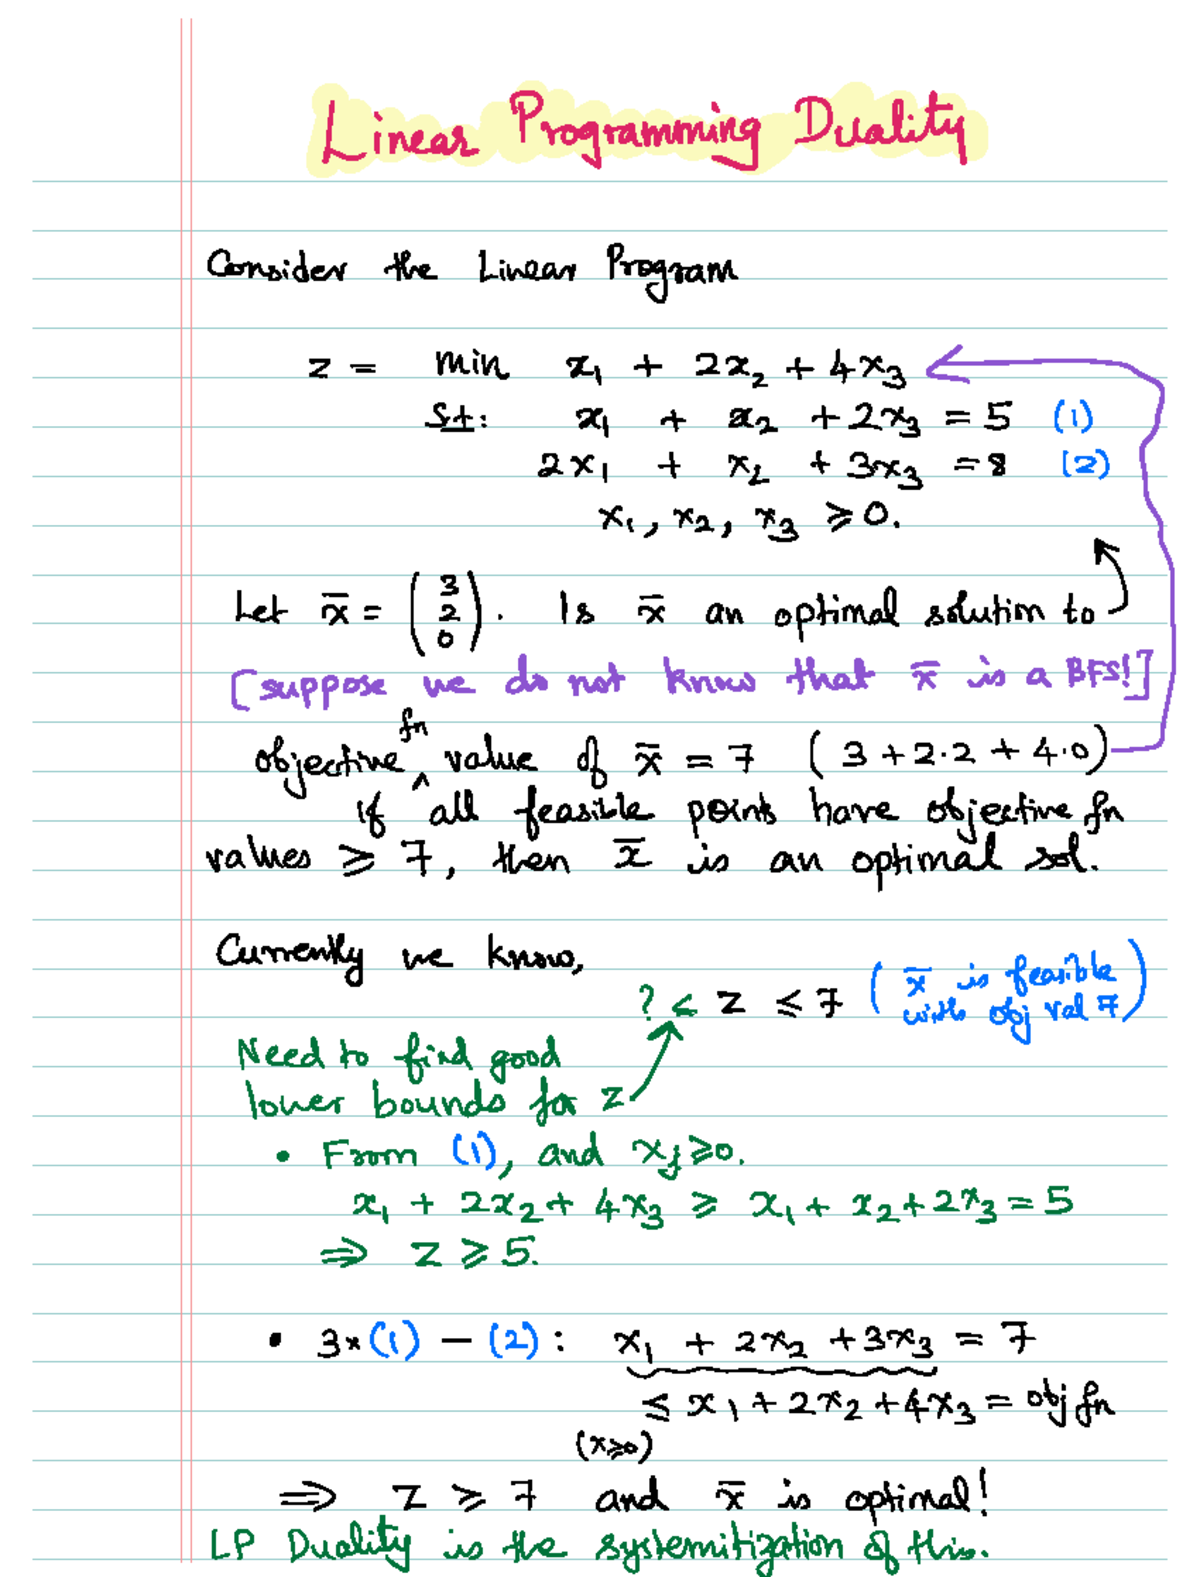 Linear Programming Duality
Consider the Linear Program
z = min x₁ + 2x₂ + 4x₃
s.t: x₁ + x₂ + 2x₃ = 5 (1)
2x₁ + x₂ + 3x₃ = 8 (2)
x₁, x₂, x₃ ≥ 0.
Let x̄ = (3 2 0). Is x̄ an optimal solution to
[suppose we do not know that x̄ is a BFS!]
objective fn value of x̄ = 7 (3 + 2·2 + 4·0)
if all feasible points have objective fn
values ≥ 7, then x̄ is an optimal sol.
Currently we know,
? ≤ z ≤ 7 (x̄ is feasible
with obj val 7)
Need to find good
lower bounds for z
• From (1), and xⱼ ≥ 0.
x₁ + 2x₂ + 4x₃ ≥ x₁ + x₂ + 2x₃ = 5
⇒ z ≥ 5.
• 3×(1) − (2): x₁ + 2x₂ + 3x₃ = 7
≤ x₁ + 2x₂ + 4x₃ = obj fn
(x≥0)
⇒ z ≥ 7 and x̄ is optimal!
LP Duality is the systemitization of this.